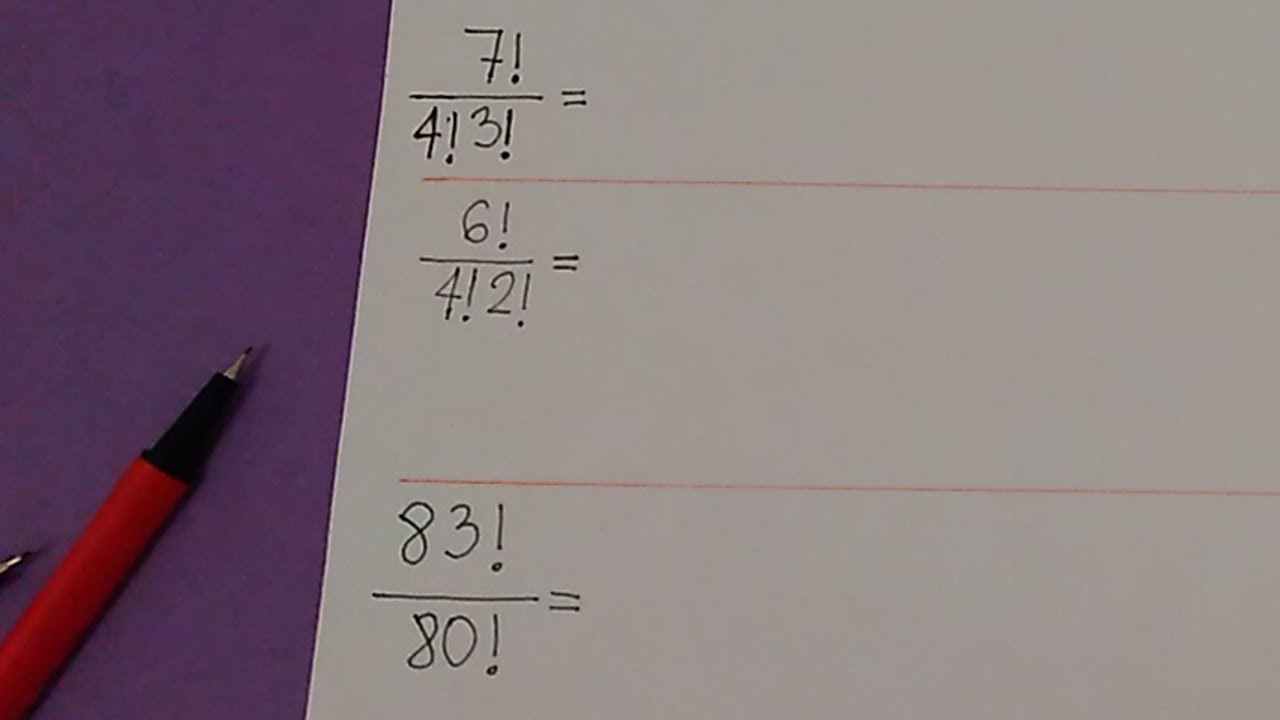 7!
4!3! =
6!
4!2! =
83!
80! =